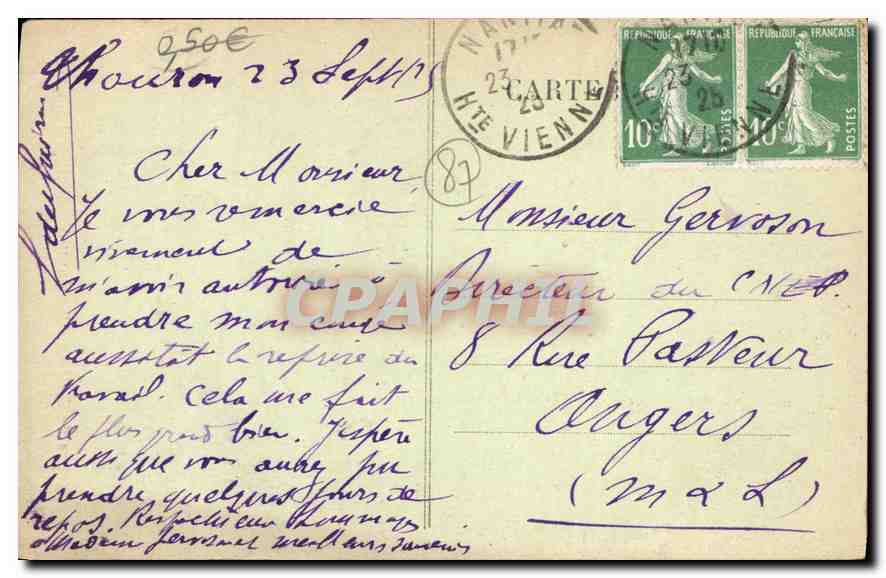 0,50€
Thouron 23 Sept 25
CARTE
NANTIAT
17 10
23
25
HTE VIENNE
REPUBLIQUE FRANÇAISE
10c
POSTES
REPUBLIQUE FRANÇAISE
10c
POSTES
87
Cher Monsieur,
Je vous remercie
vivement de
m'avoir autorisé à
prendre mon congé
aussitôt la reprise du
travail. Cela me fait
le plus grand bien. J'espère
aussi que vous aurez pu
prendre quelques jours de
repos. Respectueux hommages
à Madame Gervoson et meilleurs souvenirs
Monsieur Gervoson
Directeur du CNEP.
8 Rue Pasteur
Angers
(M & L)
CPAPHIL